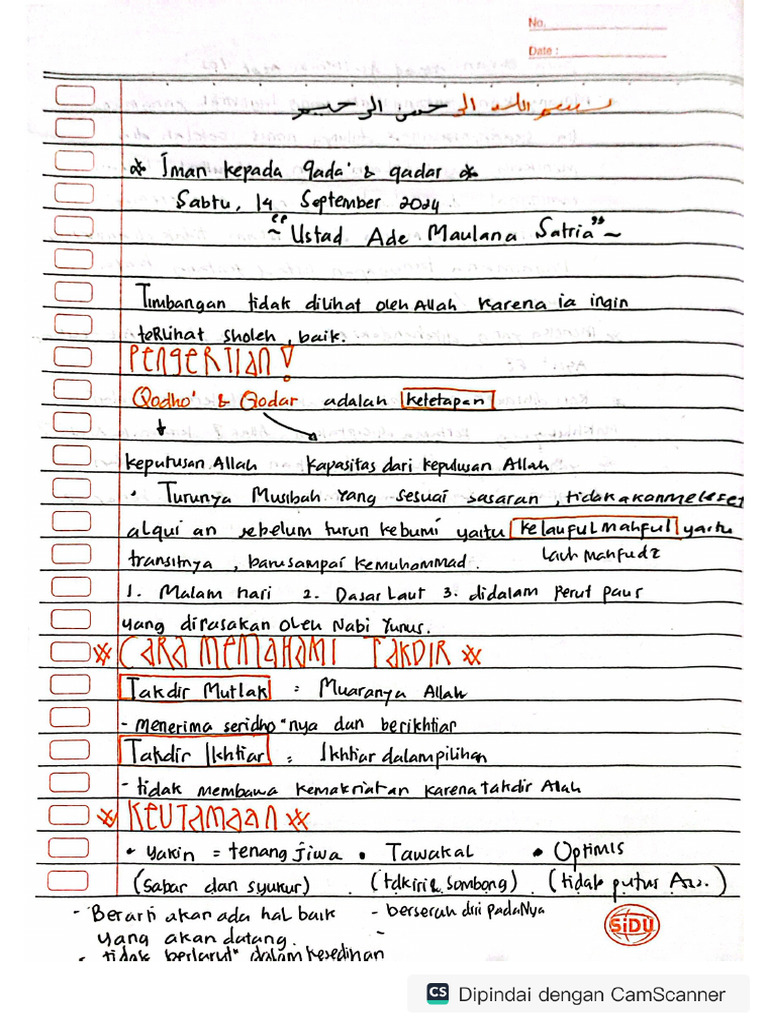 No.
Date :
بسم الله الرحمن الرحيم
* Iman kepada qada' & qadar *
Sabtu, 14 September 2024
~ "Ustad Ade Maulana Satria" ~
Timbangan tidak dilihat oleh Allah karena ia ingin
terlihat sholeh, baik.
PENGERTIAN!
Qodho' & Qodar adalah ketetapan
keputusan Allah kapasitas dari keputusan Allah
• Turunya Musibah yang sesuai sasaran, tidak akan meleset
alqur'an sebelum turun kebumi yaitu kelauful mahful yaitu
lauh mahfudz
transitnya, baru sampai kemuhammad.
1. Malam hari 2. Dasar Laut 3. didalam perut paus
yang dirasakan oleh Nabi Yunus.
* CARA MEMAHAMI TAKDIR *
Takdir Mutlak = Muaranya Allah
- menerima seridho"nya dan berikhtiar
Takdir Ikhtiar = Ikhtiar dalam pilihan
- tidak membawa kemakriatan karena takdir Allah
* KEUTAMAAN *
• yakin = tenang jiwa • Tawakal • Optimis
(sabar dan syukur) (tdk iri & sombong) (tidak putus Asa.)
- Berarti akan ada hal baik - berserah diri padaNya
yang akan datang. -
- tidak berlarut" dalam kesedihan
SiDU
CS Dipindai dengan CamScanner